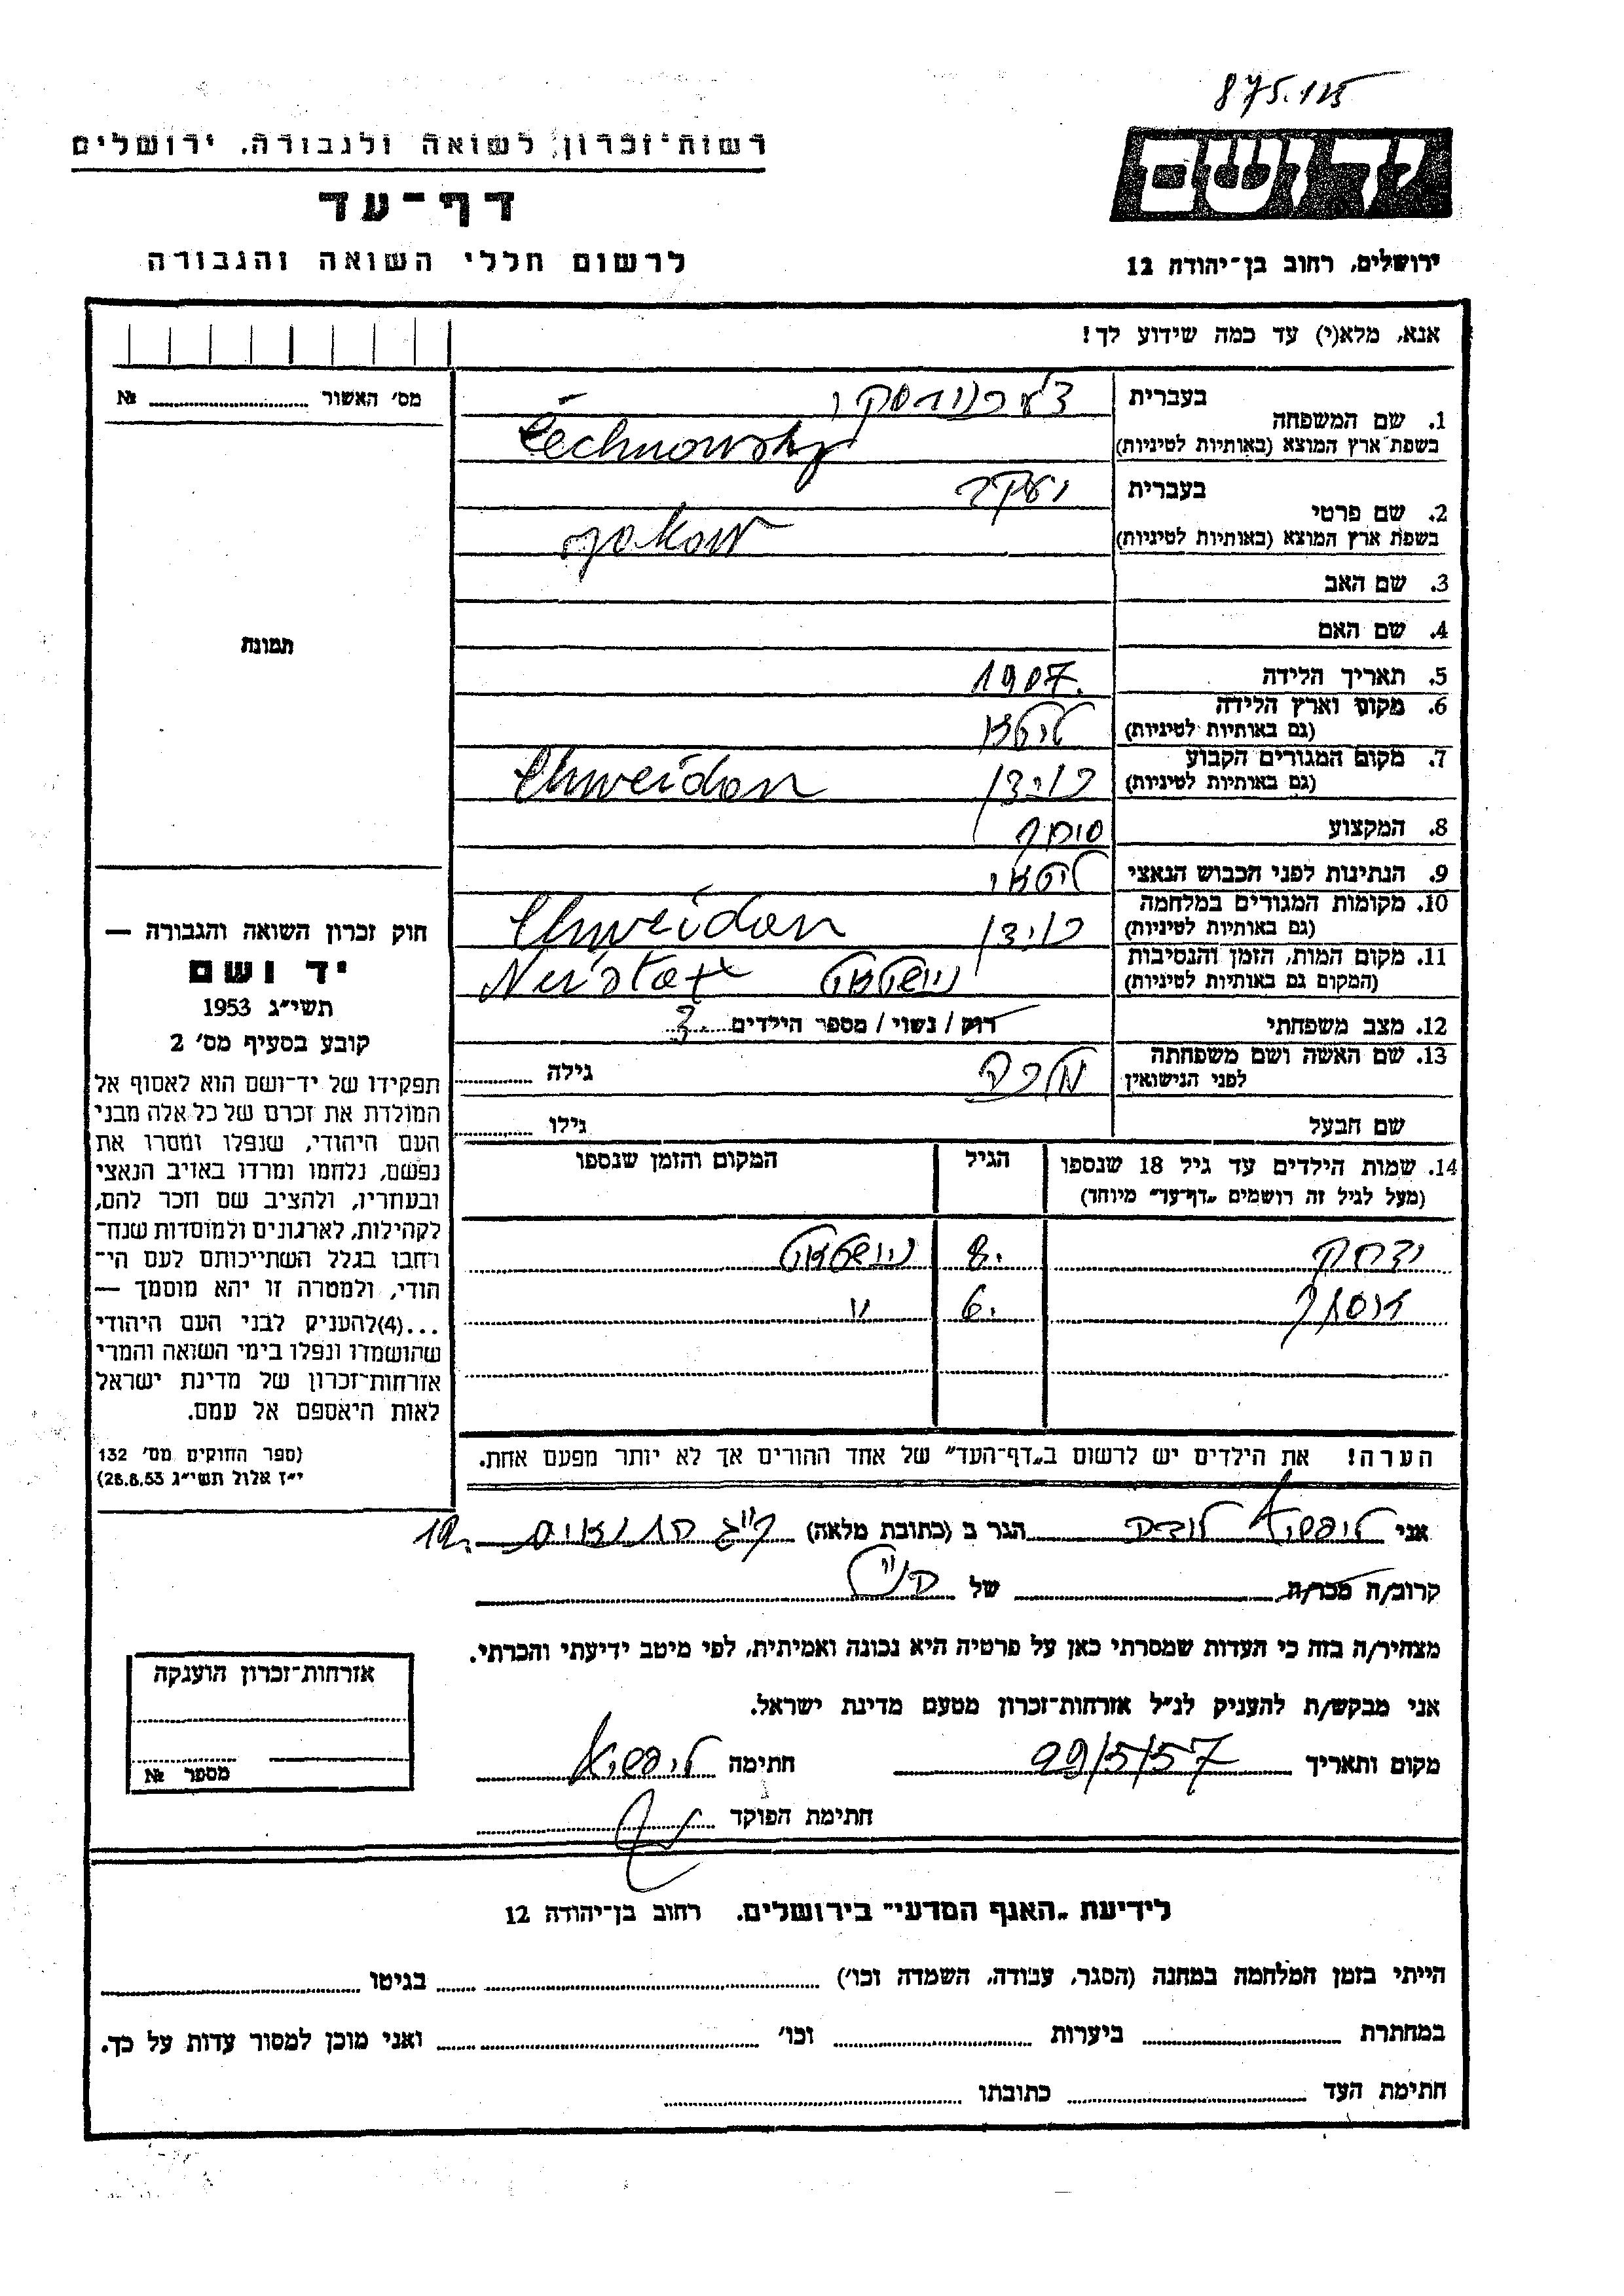 875.125
רשות־זכרון לשואה ולגבורה, ירושלים
יד ושם
דף־עד
לרשום חללי השואה והגבורה
ירושלים, רחוב בן־יהודה 12
אנא, מלא(י) עד כמה שידוע לך!
מס׳ האשור № 
1. שם המשפחה
בעברית
בשפת ארץ המוצא (באותיות לטיניות) Čechnowsky
2. שם פרטי
בעברית יעקב
בשפת ארץ המוצא (באותיות לטיניות) Jakow
3. שם האב
4. שם האם
תמונה
5. תאריך הלידה 1907.
6. מקום וארץ הלידה
(גם באותיות לטיניות) ליטא
7. מקום המגורים הקבוע
(גם באותיות לטיניות) כוידן Chweidan
8. המקצוע סוחר
9. הנתינות לפני הכבוש הנאצי ליטאי
10. מקומות המגורים במלחמה
(גם באותיות לטיניות) כוידן Chweidan
11. מקום המות, הזמן והנסיבות
(המקום גם באותיות לטיניות) ניושטאט Neistat
12. מצב משפחתי רוק / נשוי / מספר הילדים 3.
13. שם האשה ושם משפחתה
לפני הנישואין גילה
שם הבעל גילו
14. שמות הילדים עד גיל 18 שנספו
(מעל לגיל זה רושמים „דף־עד״ מיוחד)
הגיל
המקום והזמן שנספו
יצחק 8. ניושטאט
אסתר 6. ״
הערה! את הילדים יש לרשום ב„דף־העד״ של אחד ההורים אך לא יותר מפעם אחת.
חוק זכרון השואה והגבורה —
יד ושם
תשי״ג 1953
קובע בסעיף מס׳ 2
תפקידו של יד־ושם הוא לאסוף אל
המולדת את זכרם של כל אלה מבני
העם היהודי, שנפלו ומסרו את
נפשם, נלחמו ומרדו באויב הנאצי
ובעוזריו, ולהציב שם וזכר להם,
לקהילות, לארגונים ולמוסדות שנח־
רבו בגלל השתייכותם לעם הי־
הודי, ולמטרה זו יהא מוסמך —
...(4)להעניק לבני העם היהודי
שהושמדו ונפלו בימי השואה והמרי
אזרחות־זכרון של מדינת ישראל
לאות היאספם אל עמם.
(ספר החוקים מס׳ 132
י״ז אלול תשי״ג 28.8.53)
אני הגר ב (כתובת מלאה) 19.
קרוב/ה מכר/ה של
מצהיר/ה בזה כי העדות שמסרתי כאן על פרטיה היא נכונה ואמיתית, לפי מיטב ידיעתי והכרתי.
אני מבקש/ת להעניק לנ״ל אזרחות־זכרון מטעם מדינת ישראל.
מקום ותאריך 29/5/57 חתימה
חתימת הפוקד
אזרחות־זכרון הוענקה
מספר №
לידיעת „האגף המדעי״ בירושלים. רחוב בן־יהודה 12
הייתי בזמן המלחמה במחנה (הסגר, עבודה, השמדה וכו׳) בגיטו
במחתרת ביערות וכו׳ ואני מוכן למסור עדות על כך.
חתימת העד כתובתו